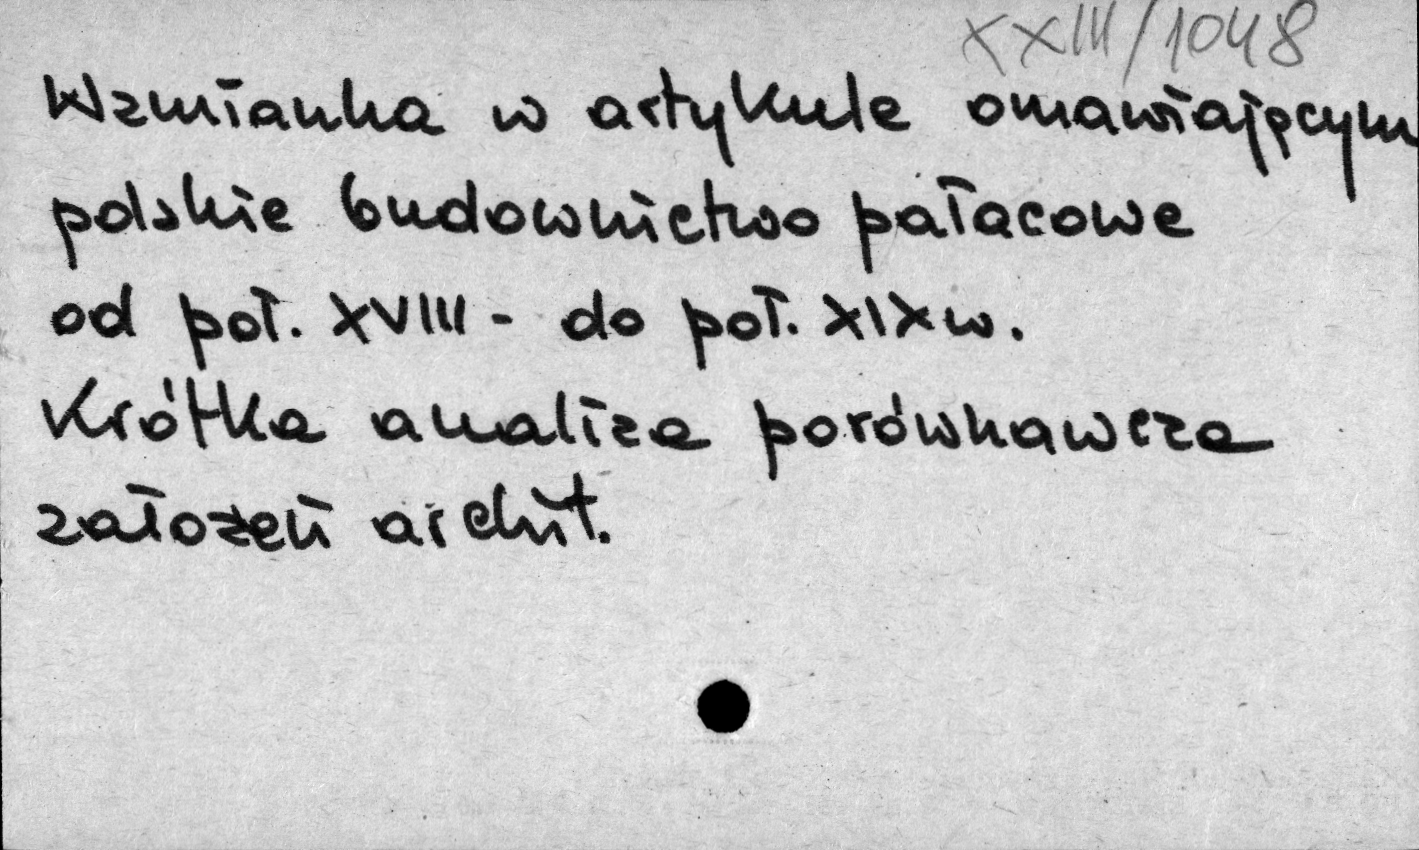 XXIII/1048
Wzmianka w artykule omawiającym
polskie budownictwo pałacowe
od poł. XVIII - do poł. XIX w.
Krótka analiza porównawcza
założeń archit.